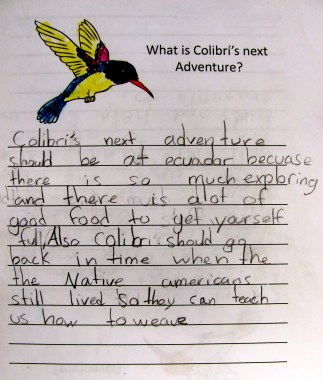 What is Colibrí's next
Adventure?
Colibri's next adventure
should be at ecuador becuase
there is so much exploring
and there is alot of
good food to get yourself
ful, Also Colibri should go
back in time when the
the Native americans
still lived so they can teach
us how to weave